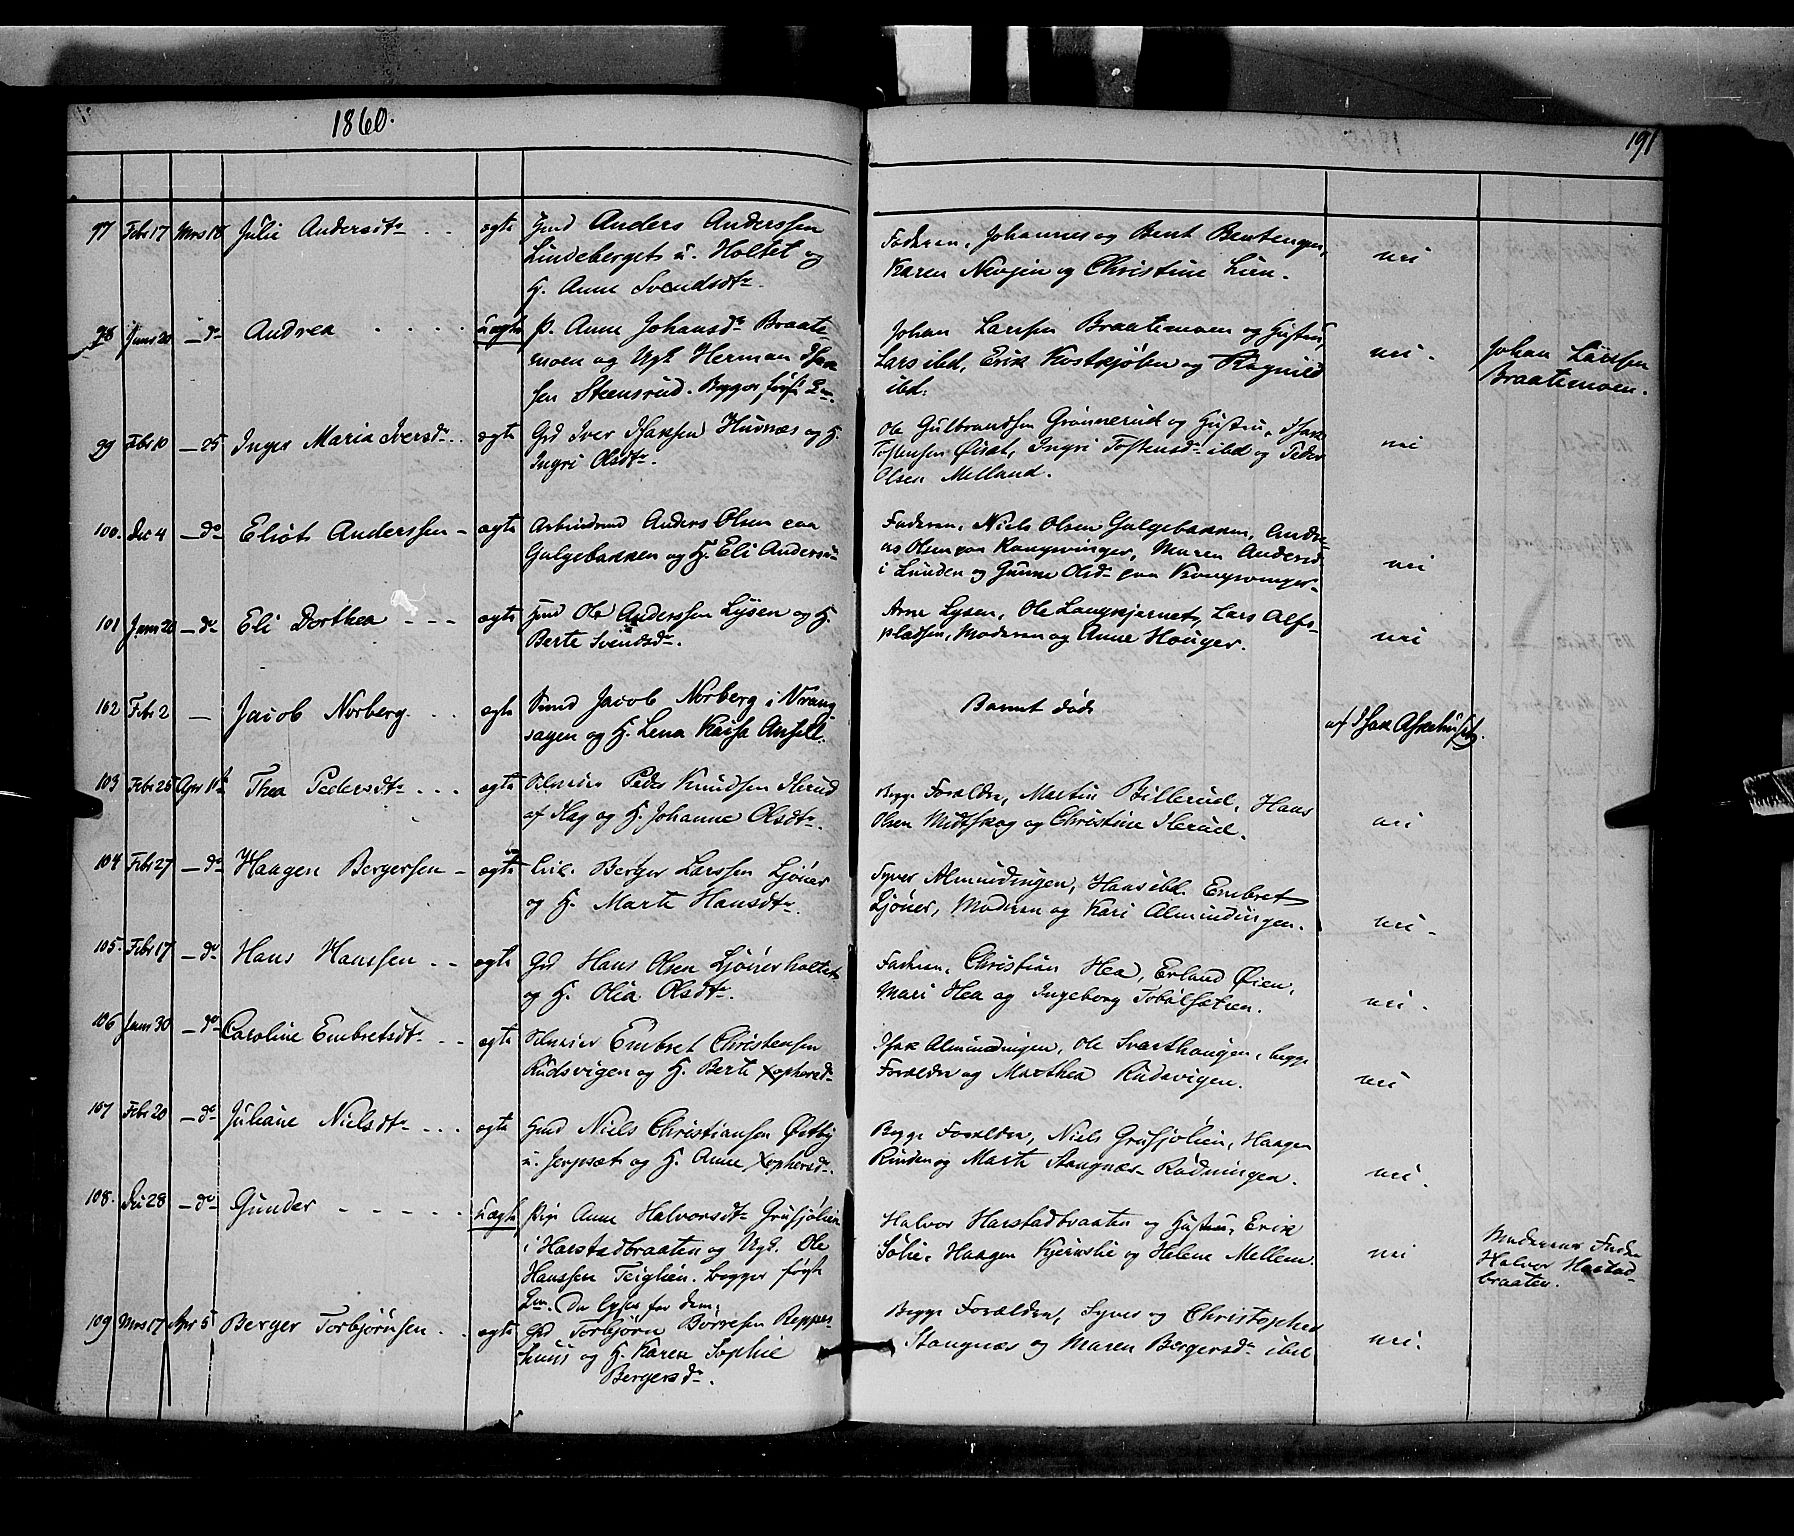 1860.
191
97 Febr 17 Mrs 18 Julie Andersdtr ægte Hmd Anders Anderssen
Lindeberget u. Holtet og
H. Anne Svendsdtr.
Faderen, Johannes og Bent Bentengen,
Karen Nevjen og Christine Lien.
nei
98 Janr 20 — do Andrea uægte P. Anne Johansdr Braate
moen og Ugk Herman Isak
sen Steensrud. Begges først L—
Johan Larssen Braatemoen og Hustru,
Lars ibd, Erik Kostkjølen og Ragnild
ibd.
nei.
Johan Larssen
Braatemoen.
99 Febr 10 — 25 Inger Maria Iversdr ægte Grd Iver Isaksen Huvnæs og H.
Ingri Olsdtr.
Ole Gulbrandsen Grønnerud og Hustru, Isak
Tostensen Øisæt, Ingri Tostensdr ibd og Peder
Olsen Melland.
nei
100. Dec 4 — do Eliot Anderssen — ægte Arbeidsmd Anders Olsen paa
Galgebakken og H. Eli Andersd—
Faderen, Niels Olsen Galgebakken, Andre-
as Olsen paa Kongsvinger, Maren Andersd
i Lunden og Gunne Olsdr paa Kongsvinger
nei
101 Janr 20 — do Eli Dorthea ægte Hmd Ole Anderssen Lysen og H.
Berte Svendsdr.
Arne Lysen, Ole Langkjernet, Lars Alfs-
pladsen, Moderen og Anne Houger.
nei
102 Febr 2 — Jacob Norberg ægte Smed Jacob Norberg i Vrang
sagen og H. Lena Kaisa Ansell.
Barnet døde
af Isak Askerhuset
103 Febr 25 Apr 1 Thea Pedersdtr ægte Selveier Peder Knudsen Herud
af Hag og H. Johanne Olsdtr.
Begge Forældre, Martin Billerud, Hans
Olsen Midtskog og Christine Herud.
nei
104 Febr 27 — do Haagen Bergersen — ægte Berger Larssen Ljøner
og H. Marte Hansdtr.
Syver Almindingen, Hans ibd. Embret
Ljøner, Moderen og Kari Almindingen.
nei.
105. Febr 17 — do Hans Hanssen ægte Grd Hans Olsen Ljønerholtet
og H. Olia Olsdtr.
Faderen, Christian Hea, Erland Øien,
Mari Hea og Ingeborg Tobølsætren.
nei.
106 Janr 30 — do Caroline Embretsdtr ægte Selveier Embret Christensen
Rudsvigen og H. Berte Xophersd—
Isak Almindingen, Ole Svarthaugen, begge
Forældre og Marthea Rudsvigen.
nei
107 Febr 20 — do Juliane Nielsdtr ægte Hmd Niels Christiansen Østby
u. Jerpsæt og H. Anne Xophersd—
Begge Forældre, Niels Grusjølien, Haagen
Rinden og Marte Stangnæs-Rødningen.
nei.
108. Dec 28 — do Gunder uægte Pige Anne Halvorsdtr Grusjølien
i Harstadbraaten og Ugk. Ole
Hanssen Teiglien. Begges første
Lm. Der lyses for dem.
Halvor Harstadbraaten og Hustru, Erik
Sølie, Haagen Kjernslie og Helene Mellem.
nei
Moderens Fader
Halvor Harstad-
braaten.
109 Mrs 17 Apr 5 Berger Torbjørnsen ægte Grd Torbjørn Børresen Repper
huus og H. Karen Sophie
Bergersdr.
Begge Forældre, Syver og Christopher
Stangnæs og Maren Bergersdr ibd
nei.